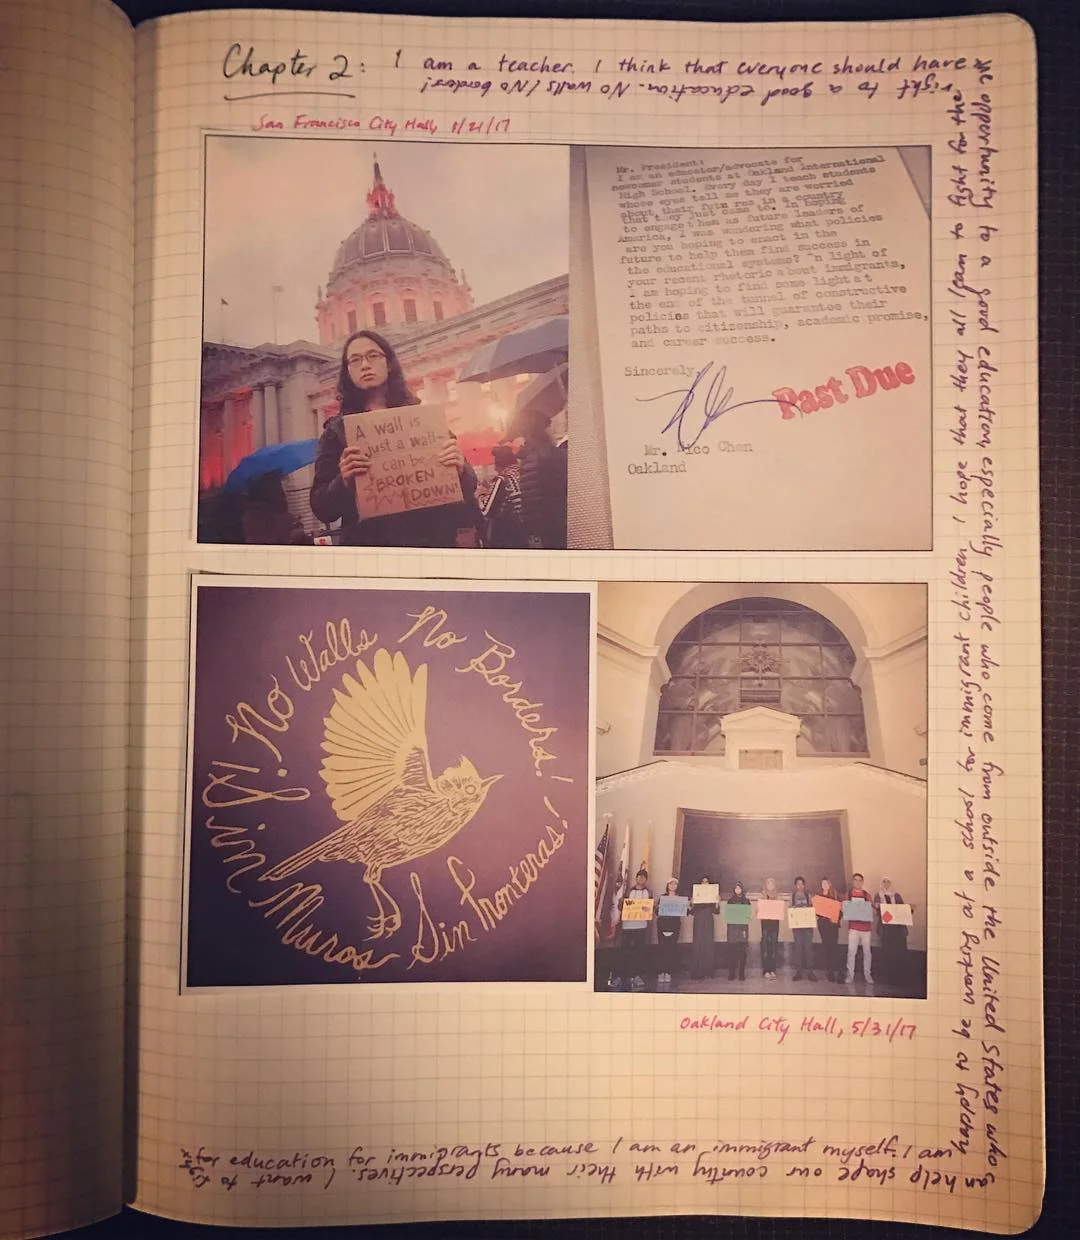 Chapter 2: I am a teacher. I think that everyone should have
the opportunity to a good education, especially people who come from outside the United States who
can help shape our country with their many perspectives. I want to fight
for education for immigrants because I am an immigrant myself. I am
to be working at a school for immigrant children. I hope that they all learn to fight for the
right to a good education. No walls! No borders!
San Francisco City Hall, 1/21/17
A wall is
just a wall
can be
BROKEN
DOWN!
Mr. President:
I am an educator/advocate for
newcomer students at Oakland International
High School. Every day I teach students
whose eyes tell me they are worried
about their futu res in a country
that they just came to. In hoping
to engage them as future leaders of
America, I was wondering what policies
are you hoping to enact in the
future to help them find success in
the educational systems? "n light of
your recent rhetoric about immigrants,
I am hoping to find some light at
the end of the tunnel of constructive
policies that will guarantee their
paths to citizenship, academic promise,
and career success.
Sincerely,
Past Due
Mr. Nico Chen
Oakland
No Walls No Borders!
¡Sin Muros Sin Fronteras!
Oakland City Hall, 5/31/17